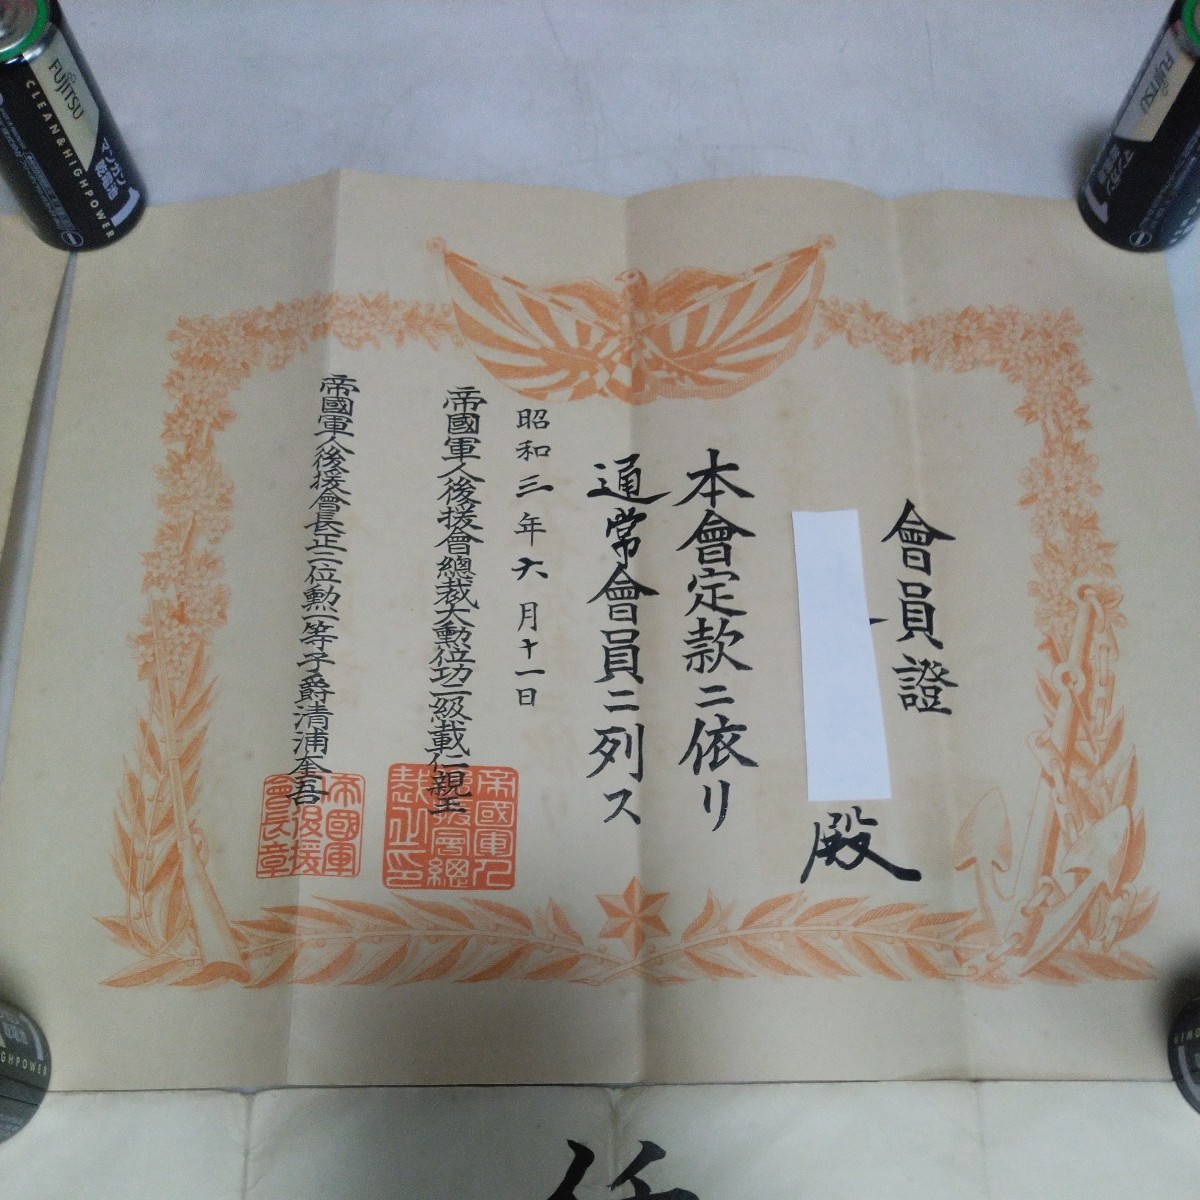 會員證
殿
本會定款ニ依リ
通常會員ニ列ス
昭和三年六月十一日
帝國軍人後援會總裁大勳位功二級載仁親王
帝國軍人後援會長正二位勲一等子爵清浦奎吾
帝國軍人後援會總裁之印
帝國軍人後援會長章
FUJITSU
CLEAN&HIGHPOWER
マンガン乾電池
1
FUJITSU
マンガン
1
GHPOWER
任